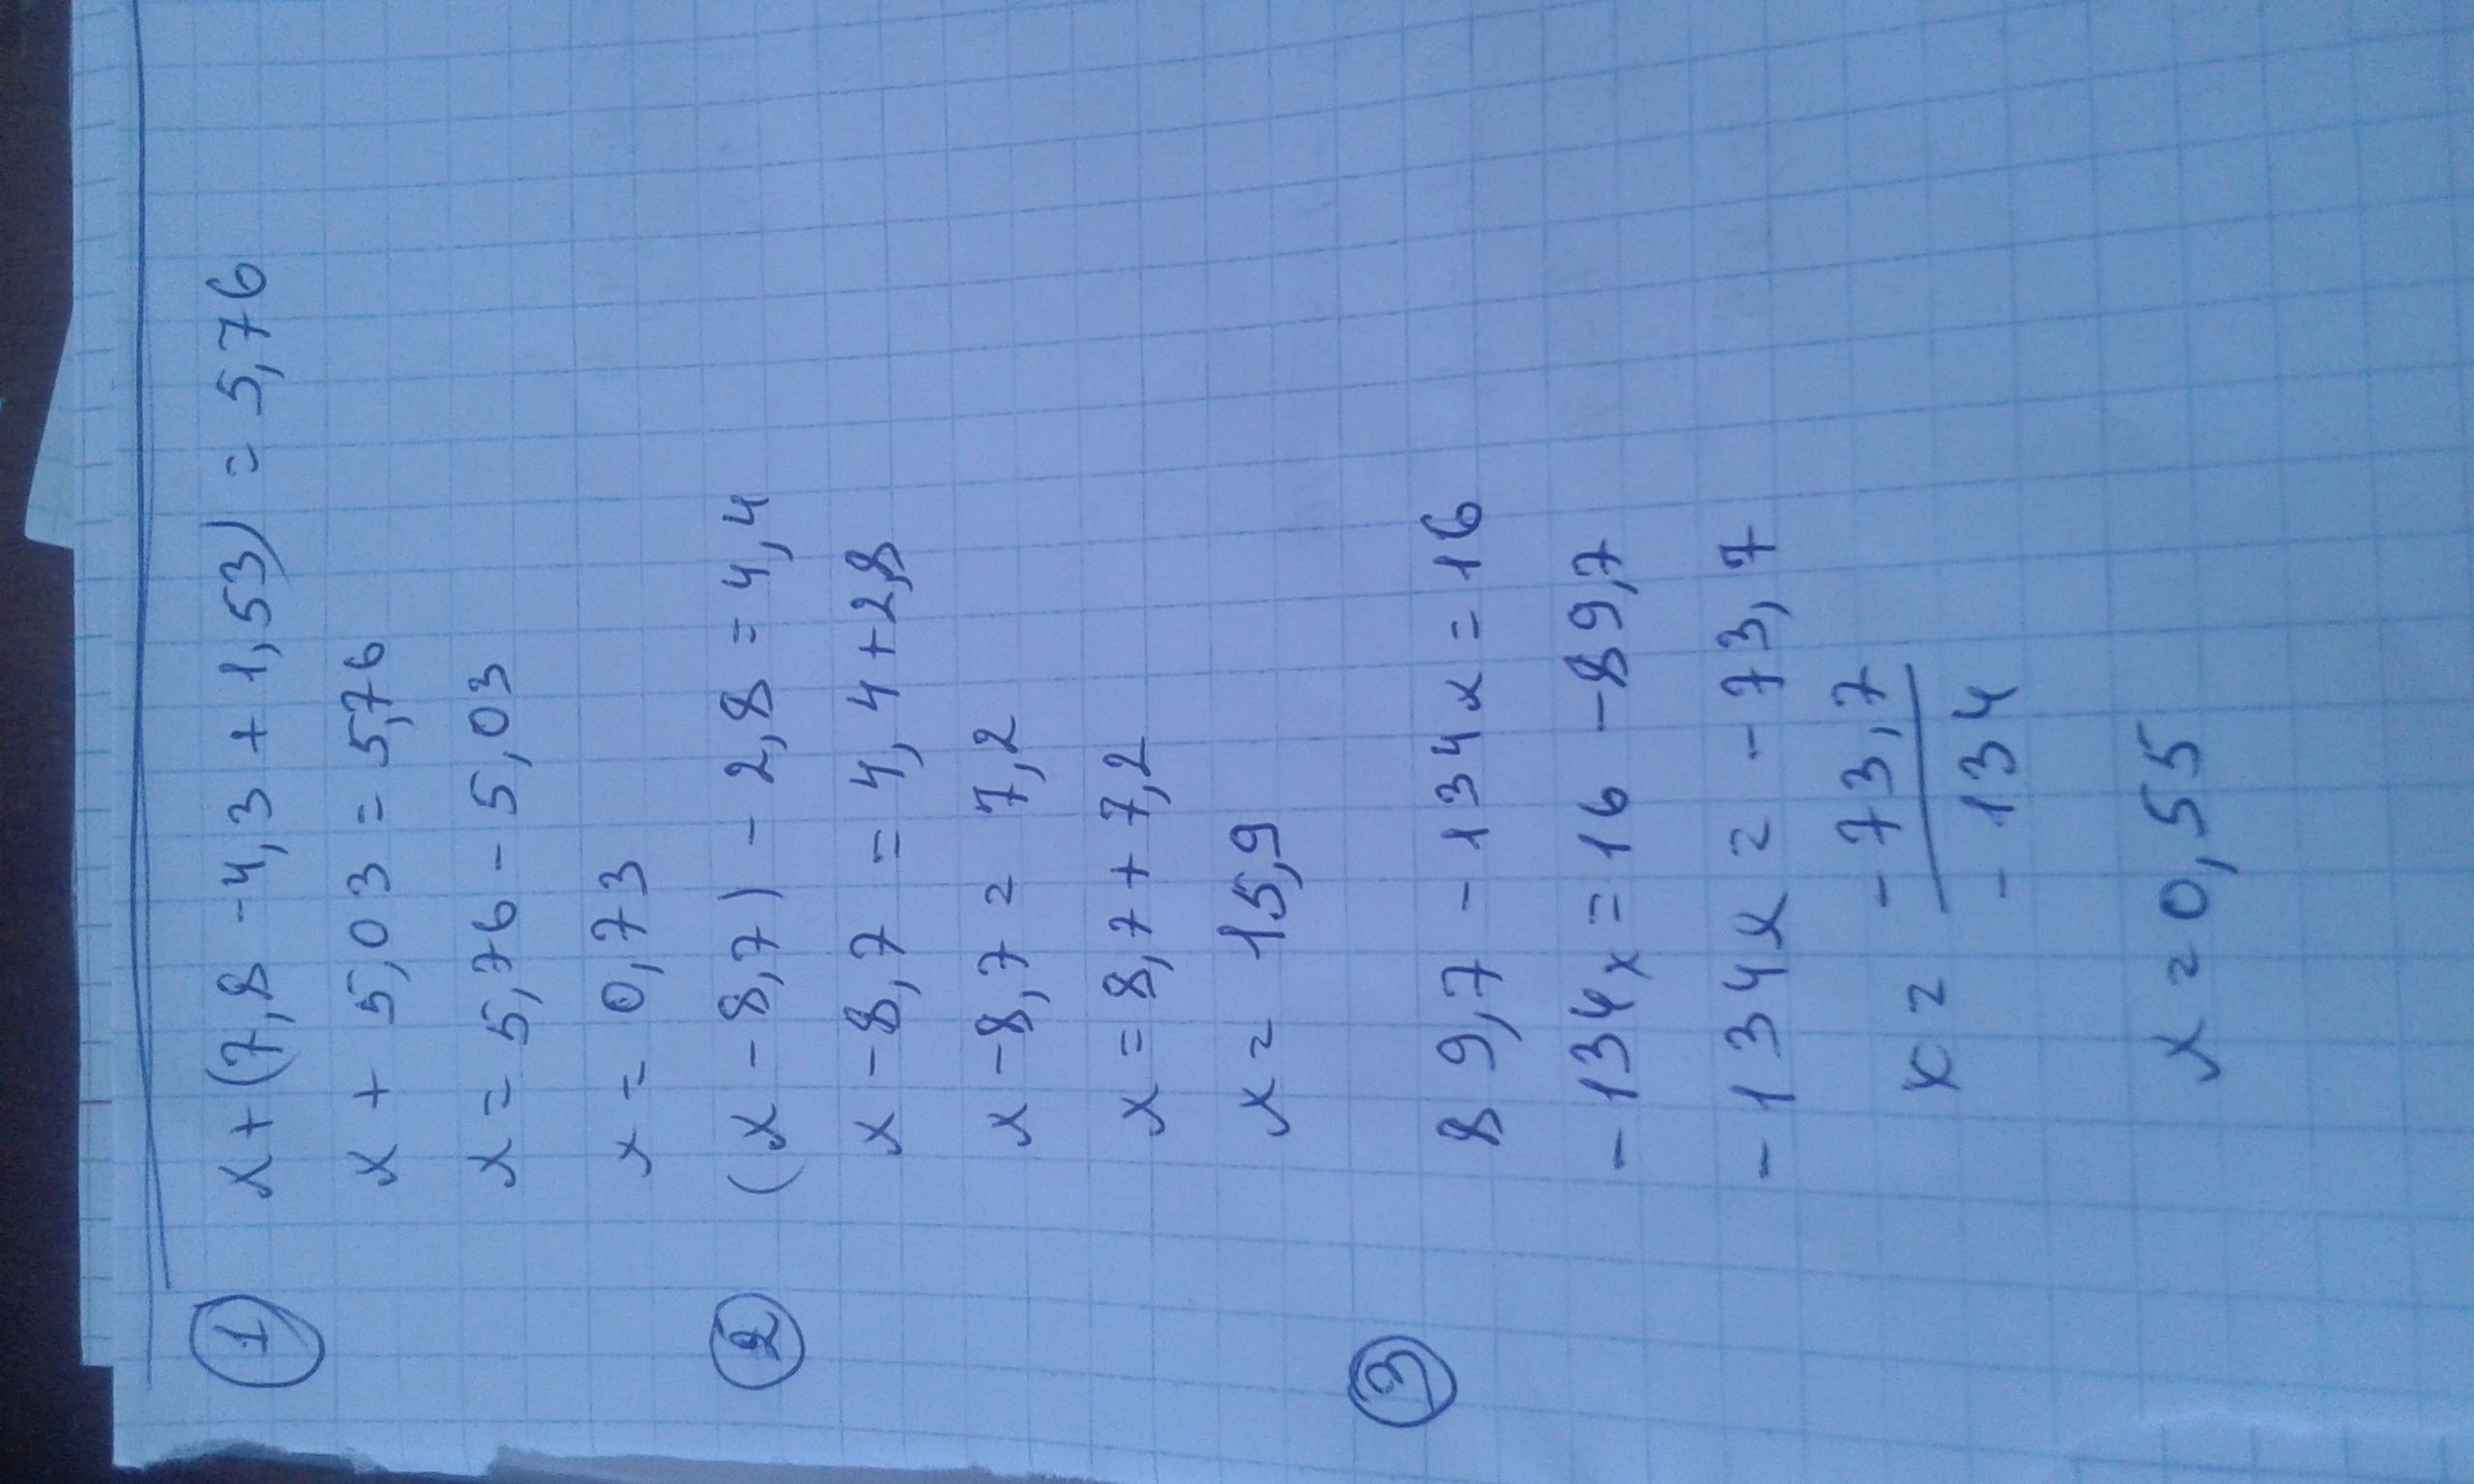 ① x+(7,8-4,3+1,53) = 5,76
x + 5,03 = 5,76
x = 5,76 - 5,03
x = 0,73
② (x-8,7) - 2,8 = 4,4
x-8,7 = 4,4+2,8
x-8,7 = 7,2
x = 8,7+7,2
x = 15,9
③ 89,7 - 134x = 16
-134x = 16 - 89,7
-134x = -73,7
x = -73,7
-134
x = 0,55